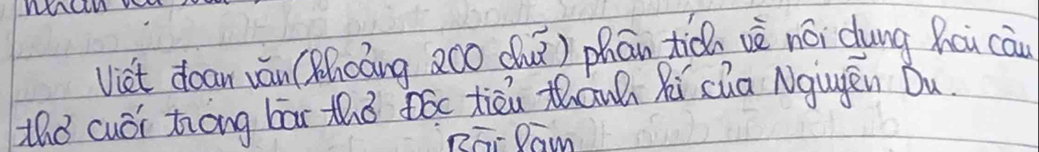 Viết đoạn văn (khoảng 200 chữ) phân tích về nội dung hai câu
thơ cuối trong bài thơ Độc tiểu thanh kí của Nguyễn Du.
Bài làm